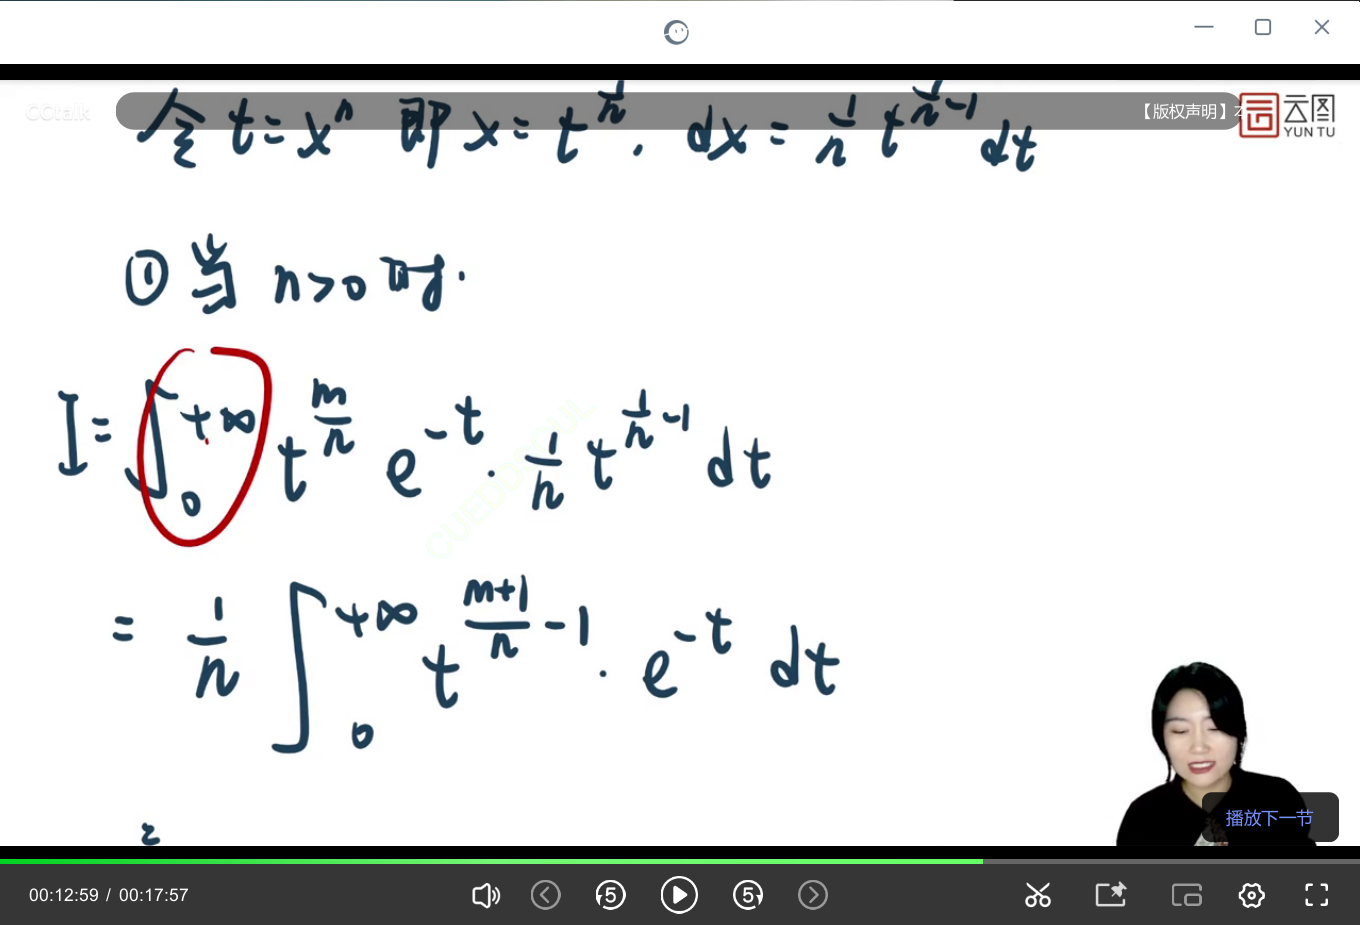 CCtalk
【版权声明】
云图
YUN TU
令 t=x^n 即 x=t^{1/n}. dx=1/n t^{1/n-1} dt
① 当 n>0 时.
I=∫_0^{+∞} t^{m/n} e^{-t}·1/n t^{1/n-1} dt
=1/n ∫_0^{+∞} t^{(m+1)/n-1}·e^{-t} dt
播放下一节
00:12:59 / 00:17:57
5 5